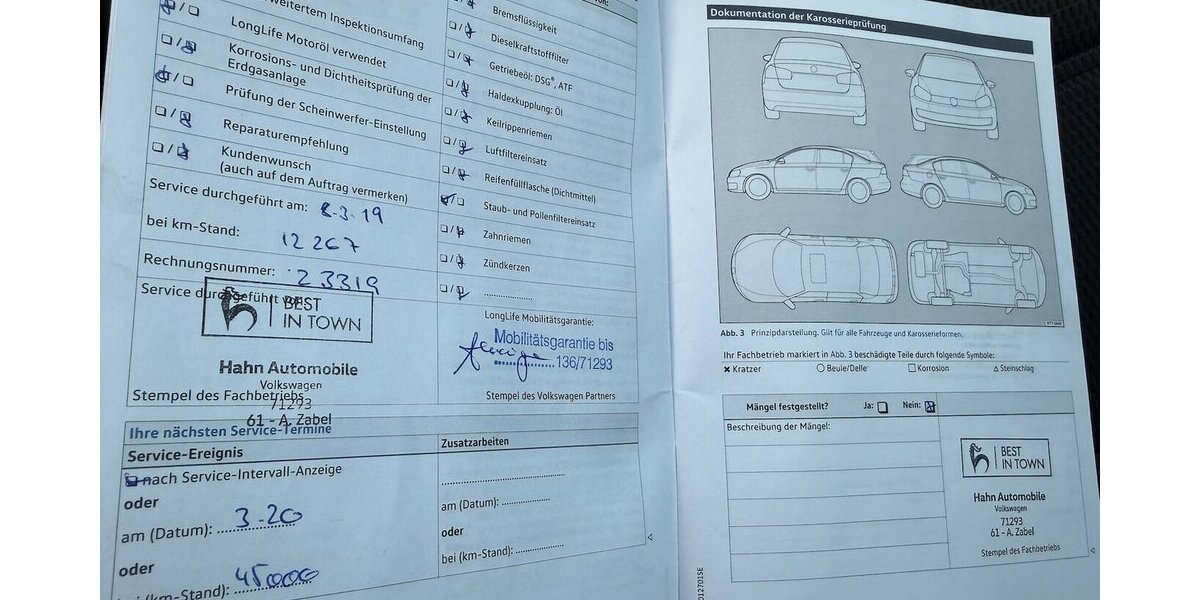 weitertem Inspektionsumfang
LongLife Motoröl verwendet
Korrosions- und Dichtheitsprüfung der
Erdgasanlage
Prüfung der Scheinwerfer-Einstellung
Reparaturempfehlung
Kundenwunsch
(auch auf dem Auftrag vermerken)
Service durchgeführt am: 8.3.19
bei km-Stand: 12 267
Rechnungsnummer: 23319
Service durchgeführt von:
BEST
IN TOWN
Hahn Automobile
Volkswagen
71293
Stempel des Fachbetriebs
61 - A. Zabel
Bremsflüssigkeit
Dieselkraftstofffilter
Getriebeöl: DSG®, ATF
Haldexkupplung: Öl
Keilrippenriemen
Luftfiltereinsatz
Reifenfüllflasche (Dichtmittel)
Staub- und Pollenfiltereinsatz
Zahnriemen
Zündkerzen
LongLife Mobilitätsgarantie:
Mobilitätsgarantie bis
136/71293
Stempel des Volkswagen Partners
Ihre nächsten Service-Termine
Service-Ereignis
nach Service-Intervall-Anzeige
oder
am (Datum): 3-20
oder
bei (km-Stand): 45000
Zusatzarbeiten
am (Datum):
oder
bei (km-Stand):
Dokumentation der Karosserieprüfung
Abb. 3 Prinzipdarstellung. Gilt für alle Fahrzeuge und Karosserieformen.
Ihr Fachbetrieb markiert in Abb. 3 beschädigte Teile durch folgende Symbole:
× Kratzer ○ Beule/Delle □ Korrosion △ Steinschlag
Mängel festgestellt? Ja: Nein:
Beschreibung der Mängel:
BEST
IN TOWN
Hahn Automobile
Volkswagen
71293
61 - A. Zabel
Stempel des Fachbetriebs